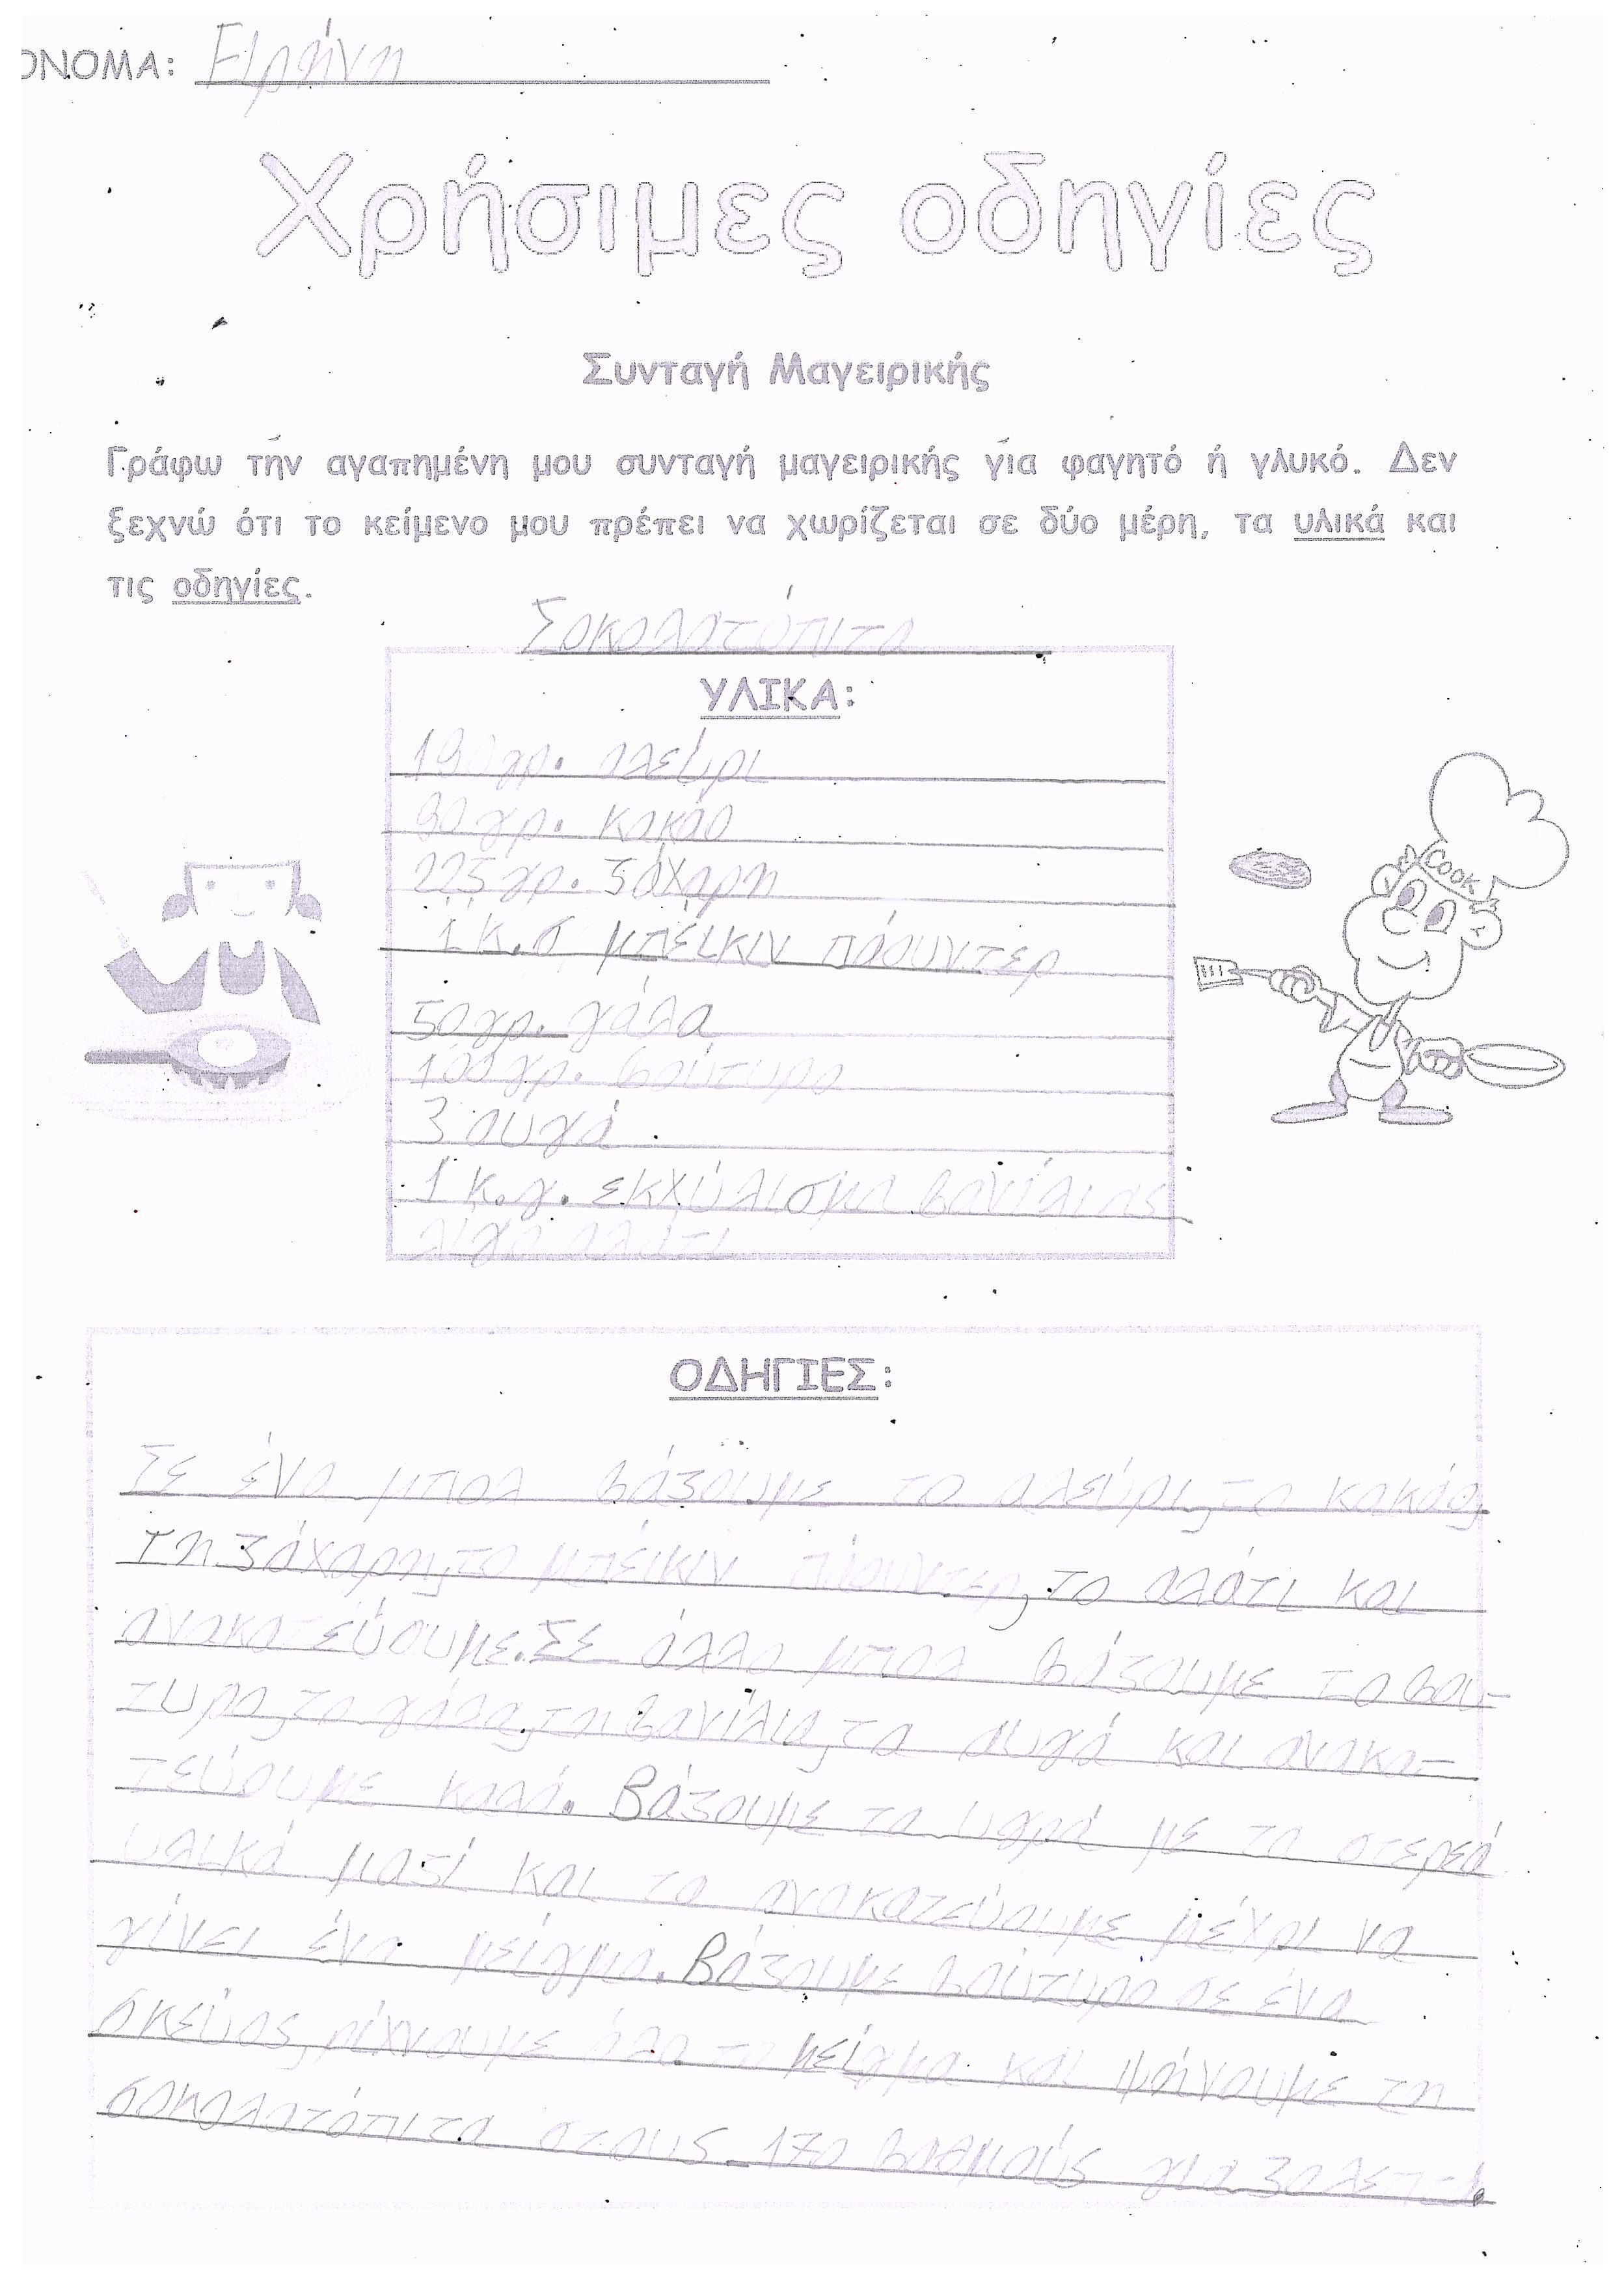 ΟΝΟΜΑ: Ειρήνη
Χρήσιμες οδηγίες
Συνταγή Μαγειρικής
Γράφω την αγαπημένη μου συνταγή μαγειρικής για φαγητό ή γλυκό. Δεν
ξεχνώ ότι το κείμενο μου πρέπει να χωρίζεται σε δύο μέρη, τα υλικά και
τις οδηγίες.
Σοκολατόπιτα
ΥΛΙΚΑ:
γρ. αλεύρι
γρ. κακάο
225 γρ. ζάχαρη
1 κ.σ μπέικιν πάουντερ
50γρ. γάλα
100γρ. βούτυρο
3 αυγά
1 κ.γ. εκχύλισμα βανίλιας
λίγο αλάτι
COOK
ΟΔΗΓΙΕΣ:
Σε ένα μπολ βάζουμε το αλεύρι, το κακάο,
τη ζάχαρη, το μπέικιν πάουντερ, το αλάτι και
ανακατεύουμε. Σε άλλο μπολ βάζουμε το βου-
τυρο, το γάλα, τη βανίλια, τα αυγά και ανακα-
τεύουμε καλά. Βάζουμε τα υγρά με τα στερεά
υλικά μαζί και τα ανακατεύουμε μέχρι να
γίνει ένα μείγμα. Βάζουμε βούτυρο σε ένα
σκεύος, ρίχνουμε όλο το μείγμα και ψήνουμε τη
σοκολατόπιτα στους 170 βαθμούς για 30 λεπτά.